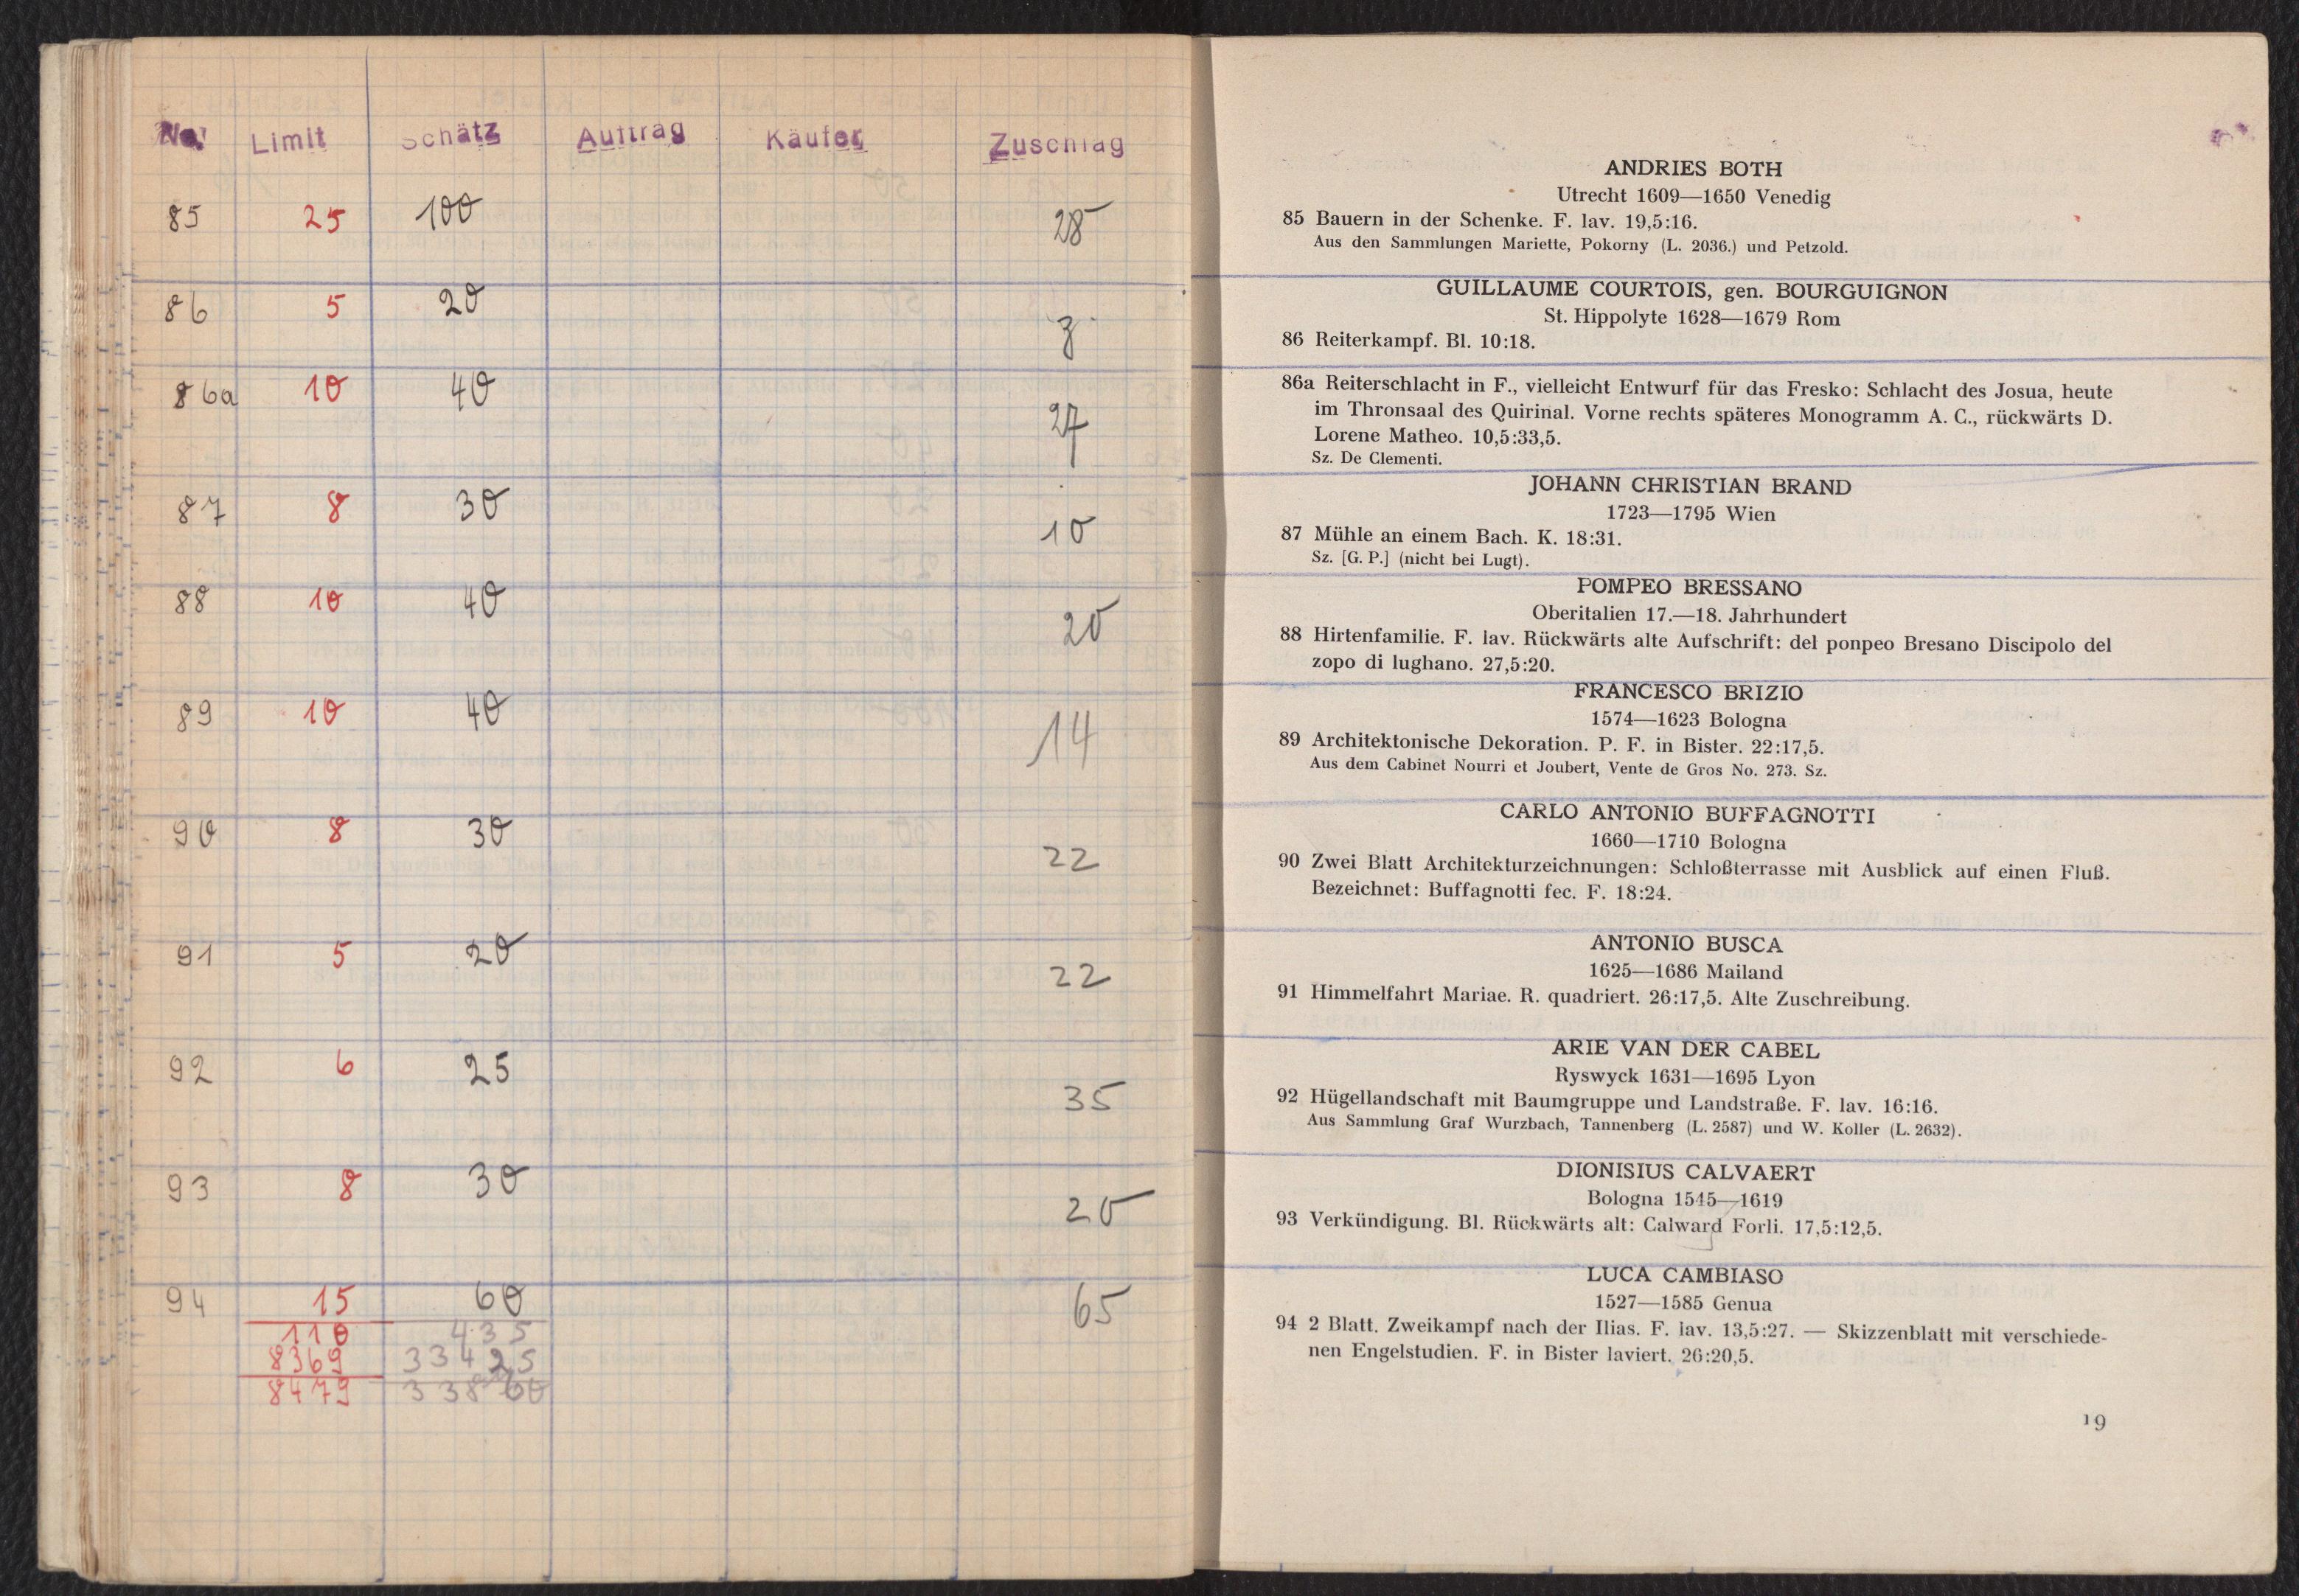 No. Limit Schätz Auftrag Käufer Zuschlag
85 25 100 28
86 5 20 8
86a 10 40 27
87 8 30 10
88 10 40 20
89 10 40 14
90 8 30 22
91 5 20 22
92 6 25 35
93 8 30 20
94 15 60 65
110 435
8369 33425
8479 33860
ANDRIES BOTH
Utrecht 1609—1650 Venedig
85 Bauern in der Schenke. F. lav. 19,5:16.
Aus den Sammlungen Mariette, Pokorny (L. 2036.) und Petzold.
GUILLAUME COURTOIS, gen. BOURGUIGNON
St. Hippolyte 1628—1679 Rom
86 Reiterkampf. Bl. 10:18.
86a Reiterschlacht in F., vielleicht Entwurf für das Fresko: Schlacht des Josua, heute
im Thronsaal des Quirinal. Vorne rechts späteres Monogramm A. C., rückwärts D.
Lorene Matheo. 10,5:33,5.
Sz. De Clementi.
JOHANN CHRISTIAN BRAND
1723—1795 Wien
87 Mühle an einem Bach. K. 18:31.
Sz. [G. P.] (nicht bei Lugt).
POMPEO BRESSANO
Oberitalien 17.—18. Jahrhundert
88 Hirtenfamilie. F. lav. Rückwärts alte Aufschrift: del ponpeo Bresano Discipolo del
zopo di lughano. 27,5:20.
FRANCESCO BRIZIO
1574—1623 Bologna
89 Architektonische Dekoration. P. F. in Bister. 22:17,5.
Aus dem Cabinet Nourri et Joubert, Vente de Gros No. 273. Sz.
CARLO ANTONIO BUFFAGNOTTI
1660—1710 Bologna
90 Zwei Blatt Architekturzeichnungen: Schloßterrasse mit Ausblick auf einen Fluß.
Bezeichnet: Buffagnotti fec. F. 18:24.
ANTONIO BUSCA
1625—1686 Mailand
91 Himmelfahrt Mariae. R. quadriert. 26:17,5. Alte Zuschreibung.
ARIE VAN DER CABEL
Ryswyck 1631—1695 Lyon
92 Hügellandschaft mit Baumgruppe und Landstraße. F. lav. 16:16.
Aus Sammlung Graf Wurzbach, Tannenberg (L. 2587) und W. Koller (L. 2632).
DIONISIUS CALVAERT
Bologna 1545—1619
93 Verkündigung. Bl. Rückwärts alt: Calward Forli. 17,5:12,5.
LUCA CAMBIASO
1527—1585 Genua
94 2 Blatt. Zweikampf nach der Ilias. F. lav. 13,5:27. — Skizzenblatt mit verschiede-
nen Engelstudien. F. in Bister laviert. 26:20,5.
19